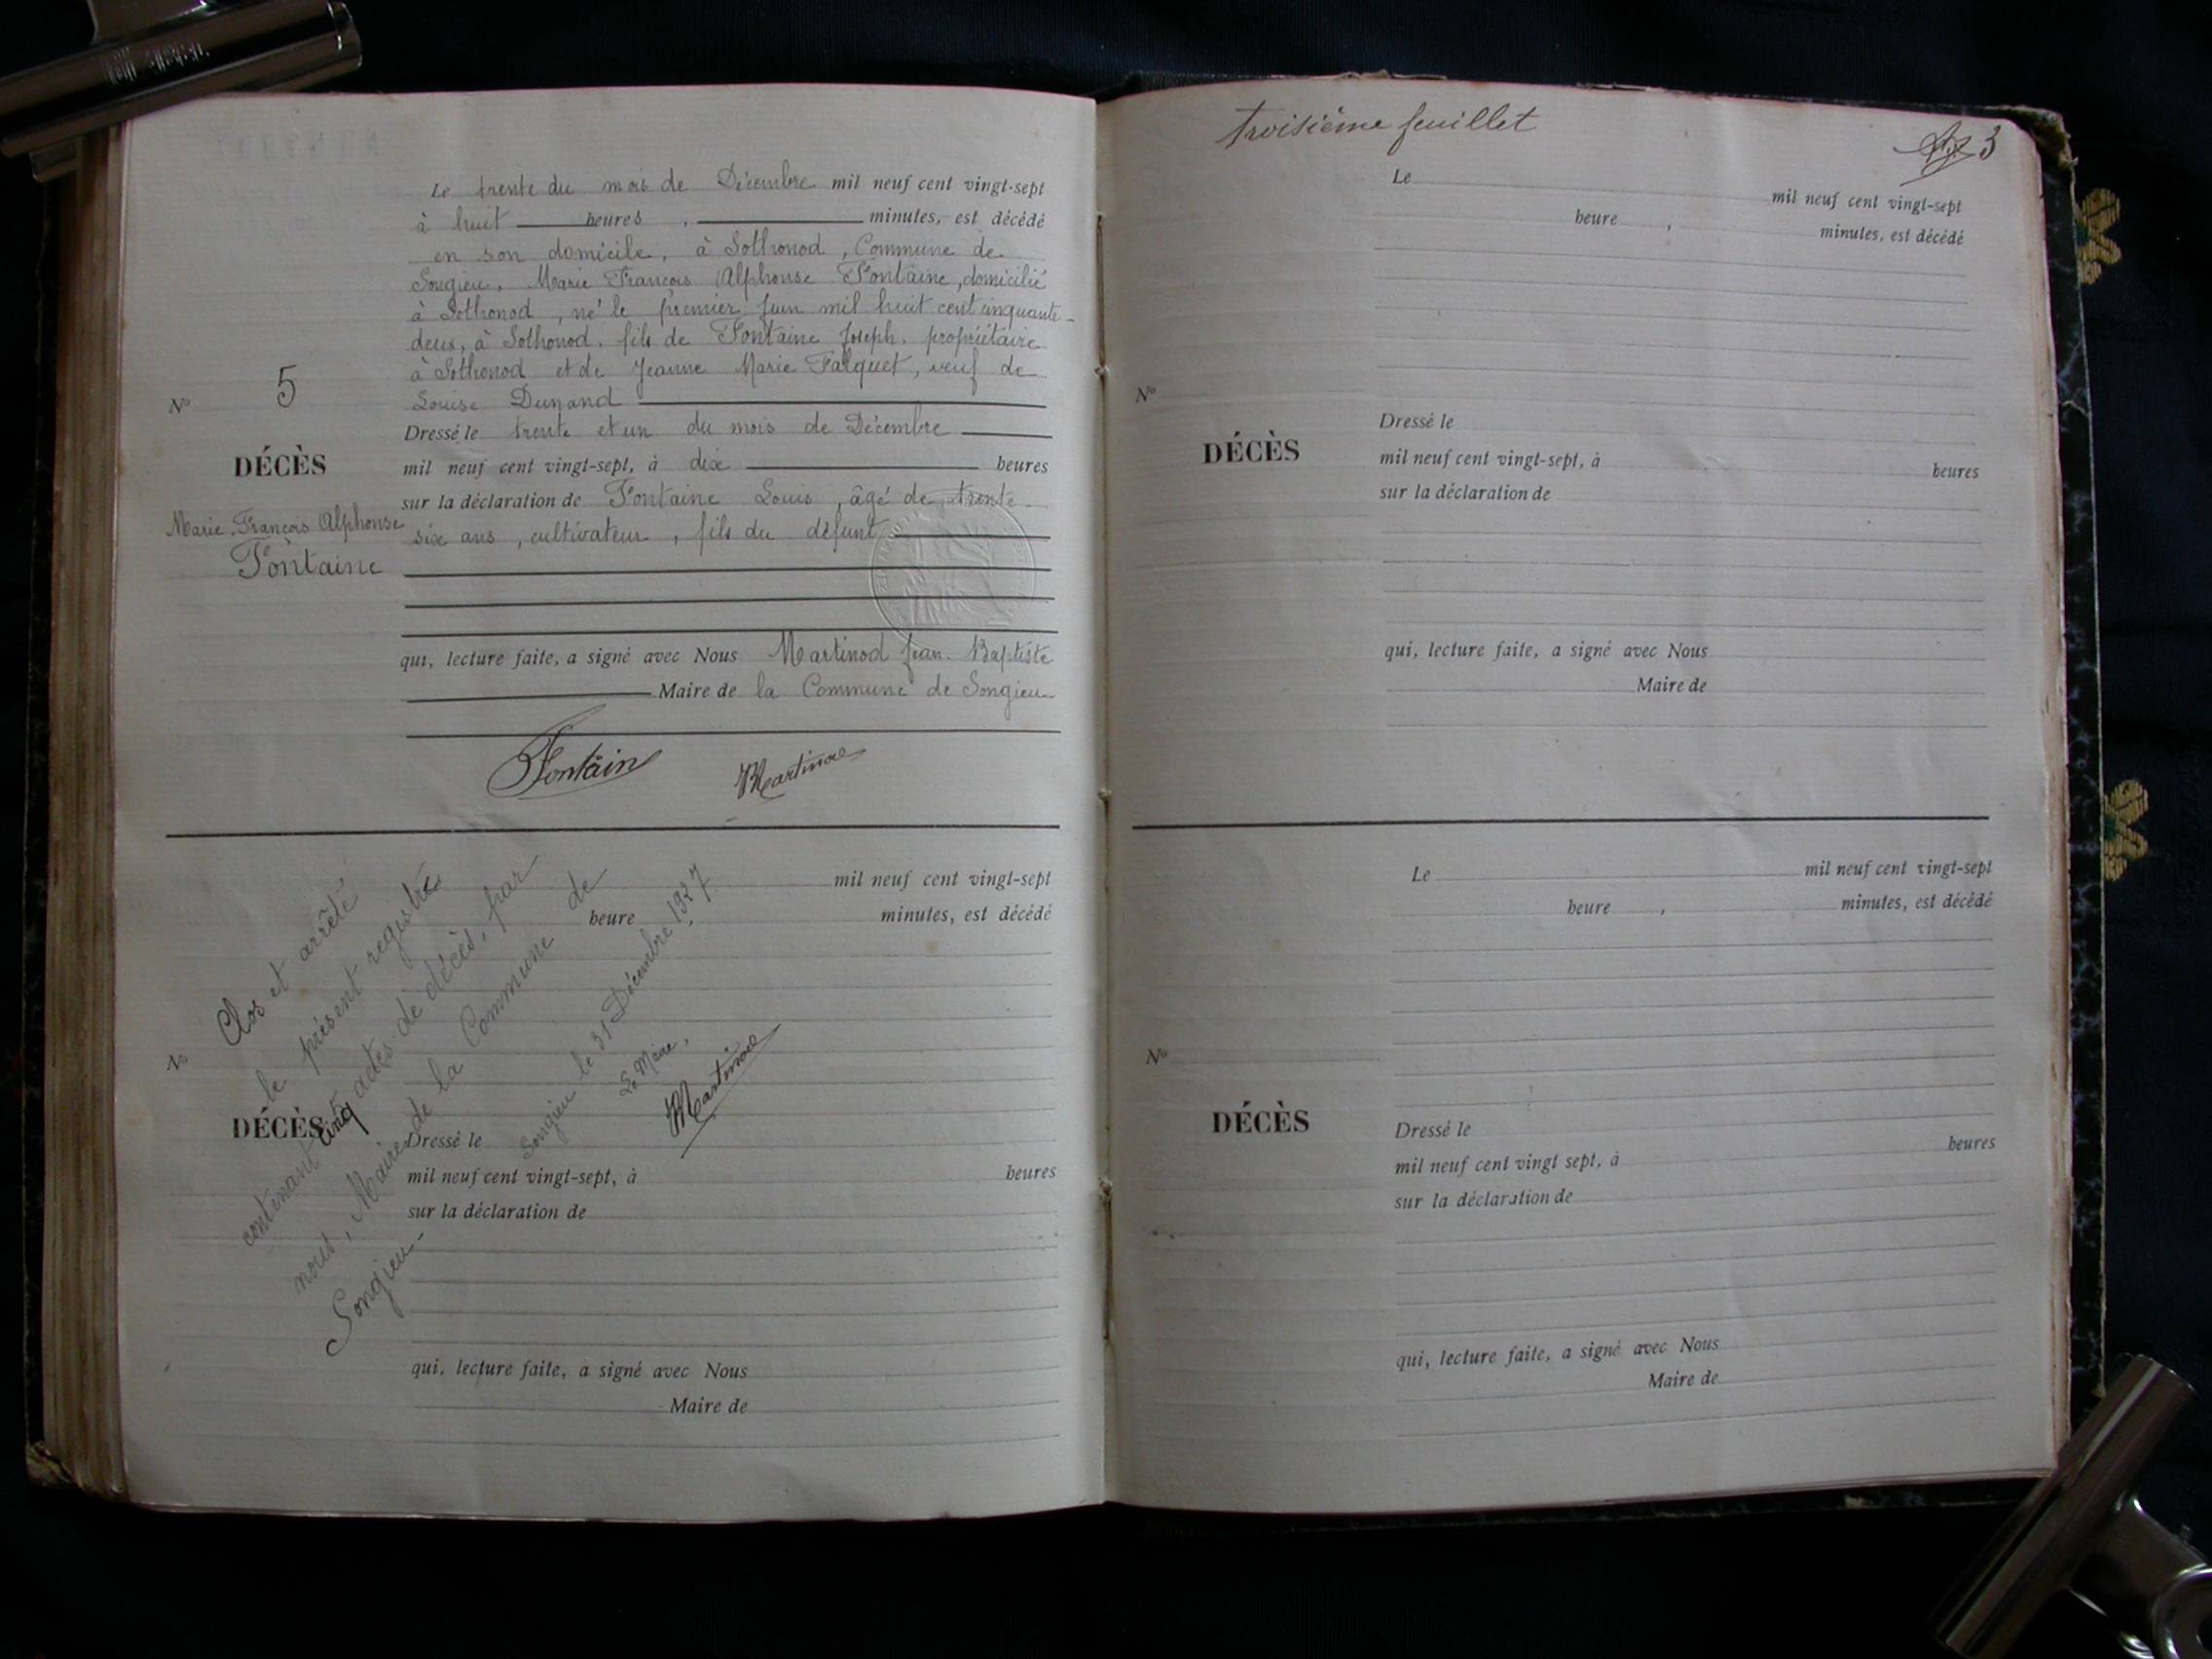 Le trente du mois de Décembre mil neuf cent vingt-sept
à huit heures , minutes, est décédé
en son domicile, à Sothonod, Commune de
Songieu, Marie François Alphonse Fontaine, domicilié
à Sothonod, né le premier Juin mil huit cent cinquante-
deux, à Sothonod, fils de Fontaine Joseph, propriétaire
à Sothonod et de Jeanne Marie Falquet, veuf de
Louise Dunand
Dressé le trente et un du mois de Décembre
mil neuf cent vingt-sept, à dix heures
sur la déclaration de Fontaine Louis, âgé de trente
six ans, cultivateur, fils du défunt
qui, lecture faite, a signé avec Nous Martinod Jean-Baptiste
Maire de la Commune de Songieu
Fontain Martinod
N° 5
DÉCÈS
Marie-François Alphonse
Fontaine
mil neuf cent vingt-sept
heure minutes, est décédé
N°
DÉCÈS
Dressé le
mil neuf cent vingt-sept, à heures
sur la déclaration de
qui, lecture faite, a signé avec Nous
Maire de
Clos et arrêté
le présent registre
contenant cinq actes de décès, par
nous, Maire de la Commune de
Songieu
Songieu le 31 Décembre 1927
Le Maire,
Martinod
troisième feuillet
3
Le mil neuf cent vingt-sept
heure , minutes, est décédé
N°
DÉCÈS
Dressé le
mil neuf cent vingt-sept, à heures
sur la déclaration de
qui, lecture faite, a signé avec Nous
Maire de
Le mil neuf cent vingt-sept
heure , minutes, est décédé
N°
DÉCÈS
Dressé le
mil neuf cent vingt sept, à heures
sur la déclaration de
qui, lecture faite, a signé avec Nous
Maire de